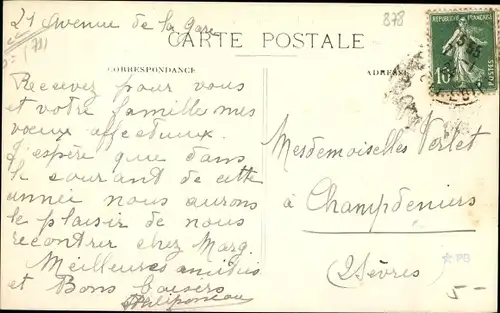 21 Avenue de la Gare
878
CARTE POSTALE
CORRESPONDANCE
ADRESSE
RÉPUBLIQUE FRANÇAISE
10
POSTES
Recevez pour vous
et votre famille mes
vœux affectueux.
J'espère que dans
le courant de cette
année nous aurons
le plaisir de nous
recontrer chez Marg.
Meilleures amitiés
et Bons baisers
Mesdemoiselles Verlet
à Champdeniers
(2 Sèvres)
PB
5-